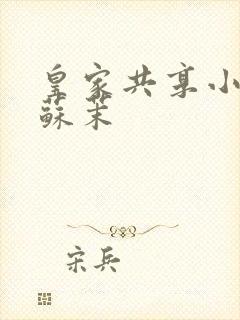 皇家共享小
蘇茉
宋兵